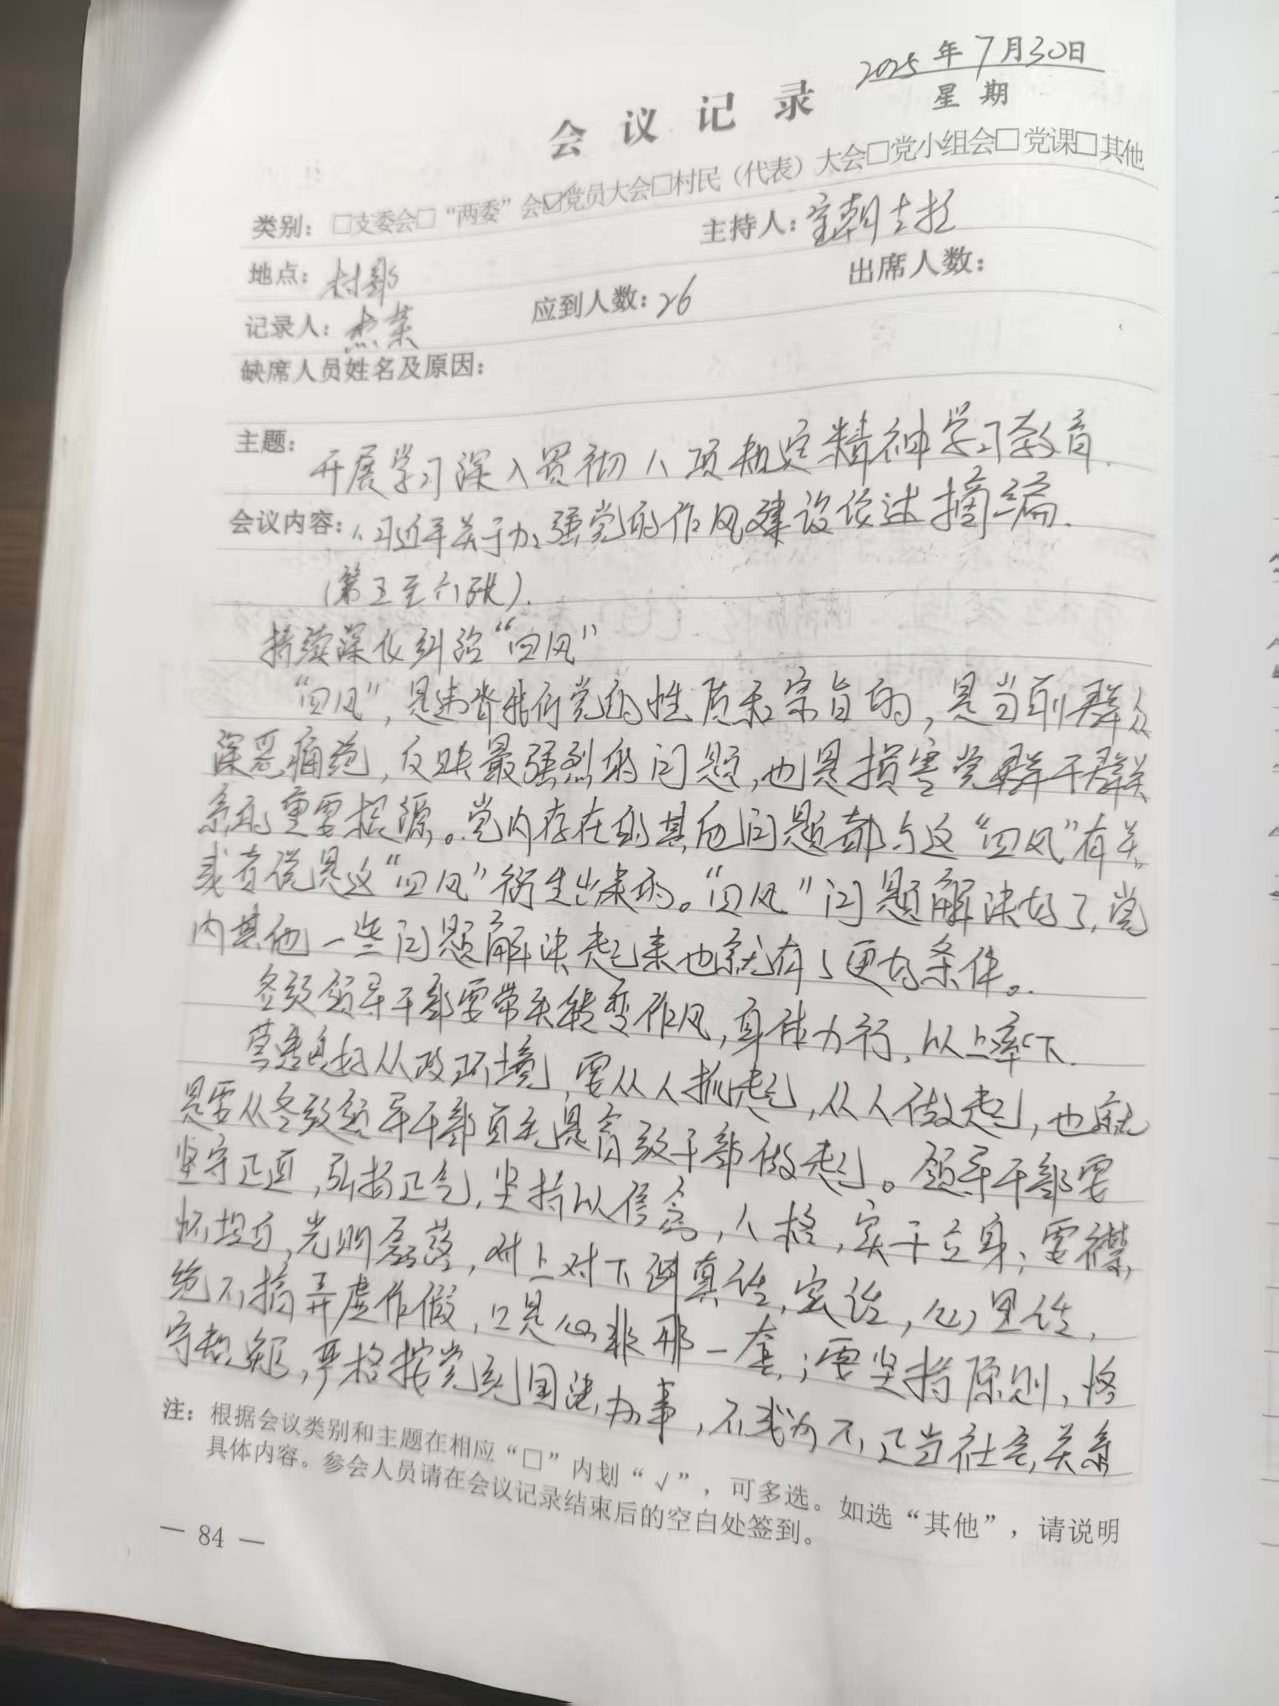 2025年7月30日
星期
会议记录
类别：□支委会□“两委”会☑党员大会□村民（代表）大会□党小组会□党课□其他
地点：村部
主持人：
记录人：杰荣
应到人数：26
出席人数：
缺席人员姓名及原因：
主题：开展学习深入贯彻八项规定精神学习教育.
会议内容：习近平关于加强党的作风建设论述摘编.
（第五至六张）.
持续深化纠治“四风”
“四风”，是违背我们党的性质和宗旨的，是当前群众
深恶痛绝，反映最强烈的问题，也是损害党群干群关
系的重要根源。党内存在的其他问题都与这“四风”有关，
或者说是这“四风”衍生出来的。“四风”问题解决好了，党
内其他一些问题解决起来也就有了更好条件。
各级领导干部要带头转变作风，身体力行，以上率下.
营造良好从政环境，要从人抓起，从人做起，也就
是要从各级领导干部首先是高级干部做起。领导干部要
坚守正道，弘扬正气，坚持以信念，人格，实干立身；要襟
怀坦白，光明磊落，对上对下讲真话，实话，心里话，
绝不搞弄虚作假，口是心非那一套；要坚持原则，恪
守规矩，严格按党纪国法办事，不成为不正当社会关系
注：根据会议类别和主题在相应“□”内划“√”，可多选。如选“其他”，请说明
具体内容。参会人员请在会议记录结束后的空白处签到。
— 84 —